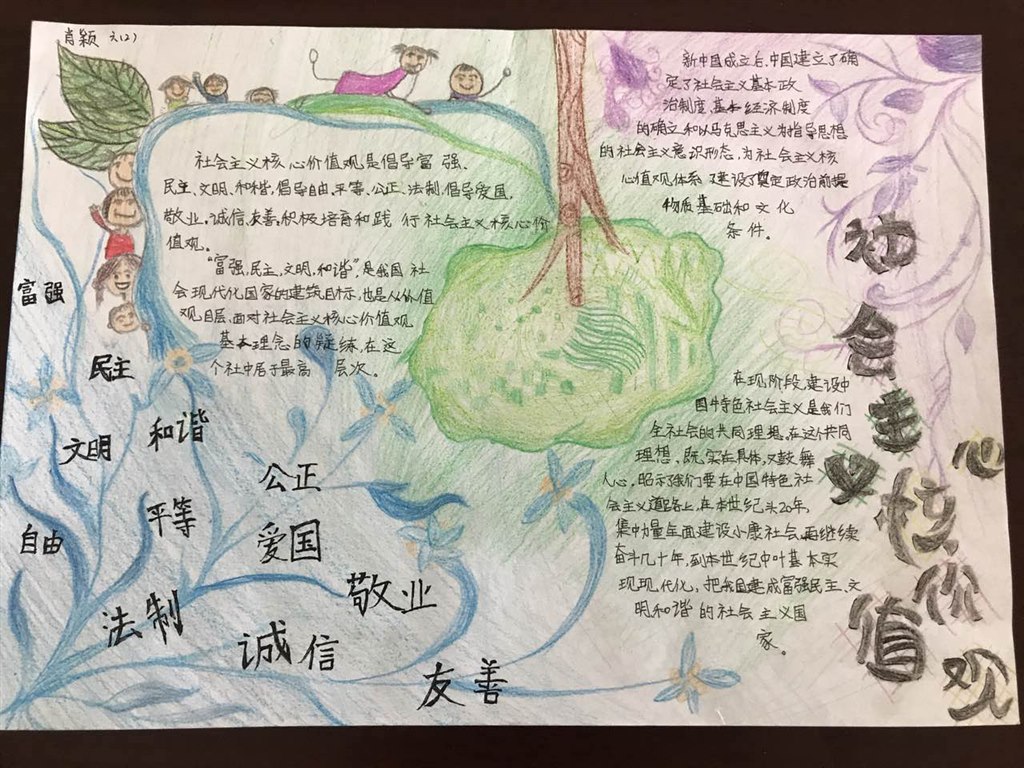 肖颖 六(2)
社会主义核心价值观是倡导富强、
民主、文明、和谐,倡导自由、平等、公正、法制,倡导爱国,
敬业,诚信,友善,积极培育和践行社会主义核心价
值观。
“富强,民主,文明,和谐”,是我国社
会现代化国家的建筑目标,也是从价值
观目层面对社会主义核心价值观
基本理念的凝练,在这
个社中居于最高层次。
新中国成立后,中国建立了确
定了社会主义基本政
治制度,基本经济制度
的确立和以马克思主义为指导思想
的社会主义意识形态,为社会主义核
心价值观体系建设了奠定政治前提
物质基础和文化
条件。
在现阶段,建设中
国特色社会主义是我们
全社会的共同理想。在这个共同
理想,既实在具体,又鼓舞
人心,昭示了我们要在中国特色社
会主义道路上,在本世纪头20年,
集中力量全面建设小康社会,再继续
奋斗几十年,到本世纪中叶基本实
现现代化,把我国建成富强民主、文
明和谐的社会主义国
家。
社会主义核心价值观
富强
民主
文明
和谐
自由
平等
公正
法制
爱国
敬业
诚信
友善